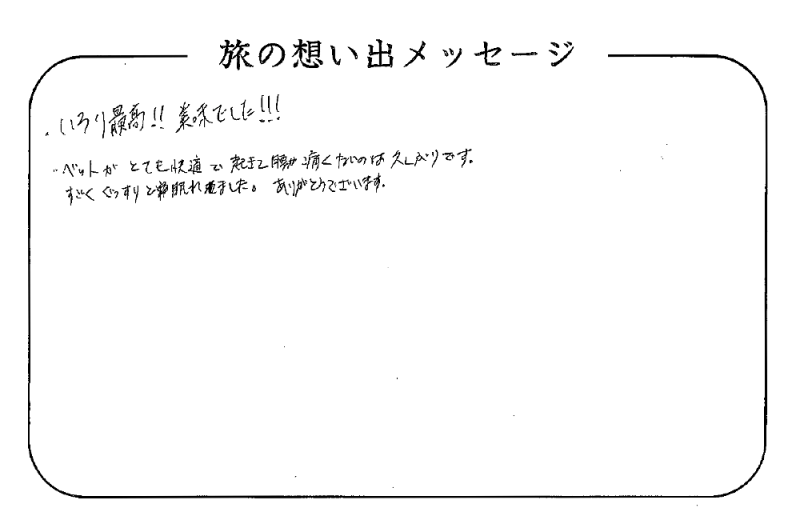 旅の想い出メッセージ
・いろり最高!! 美味でした!!!
・ベットがとても快適で起きて腰が痛くないのは久しぶりです。
すごくぐっすりと眠れました。ありがとうございます。